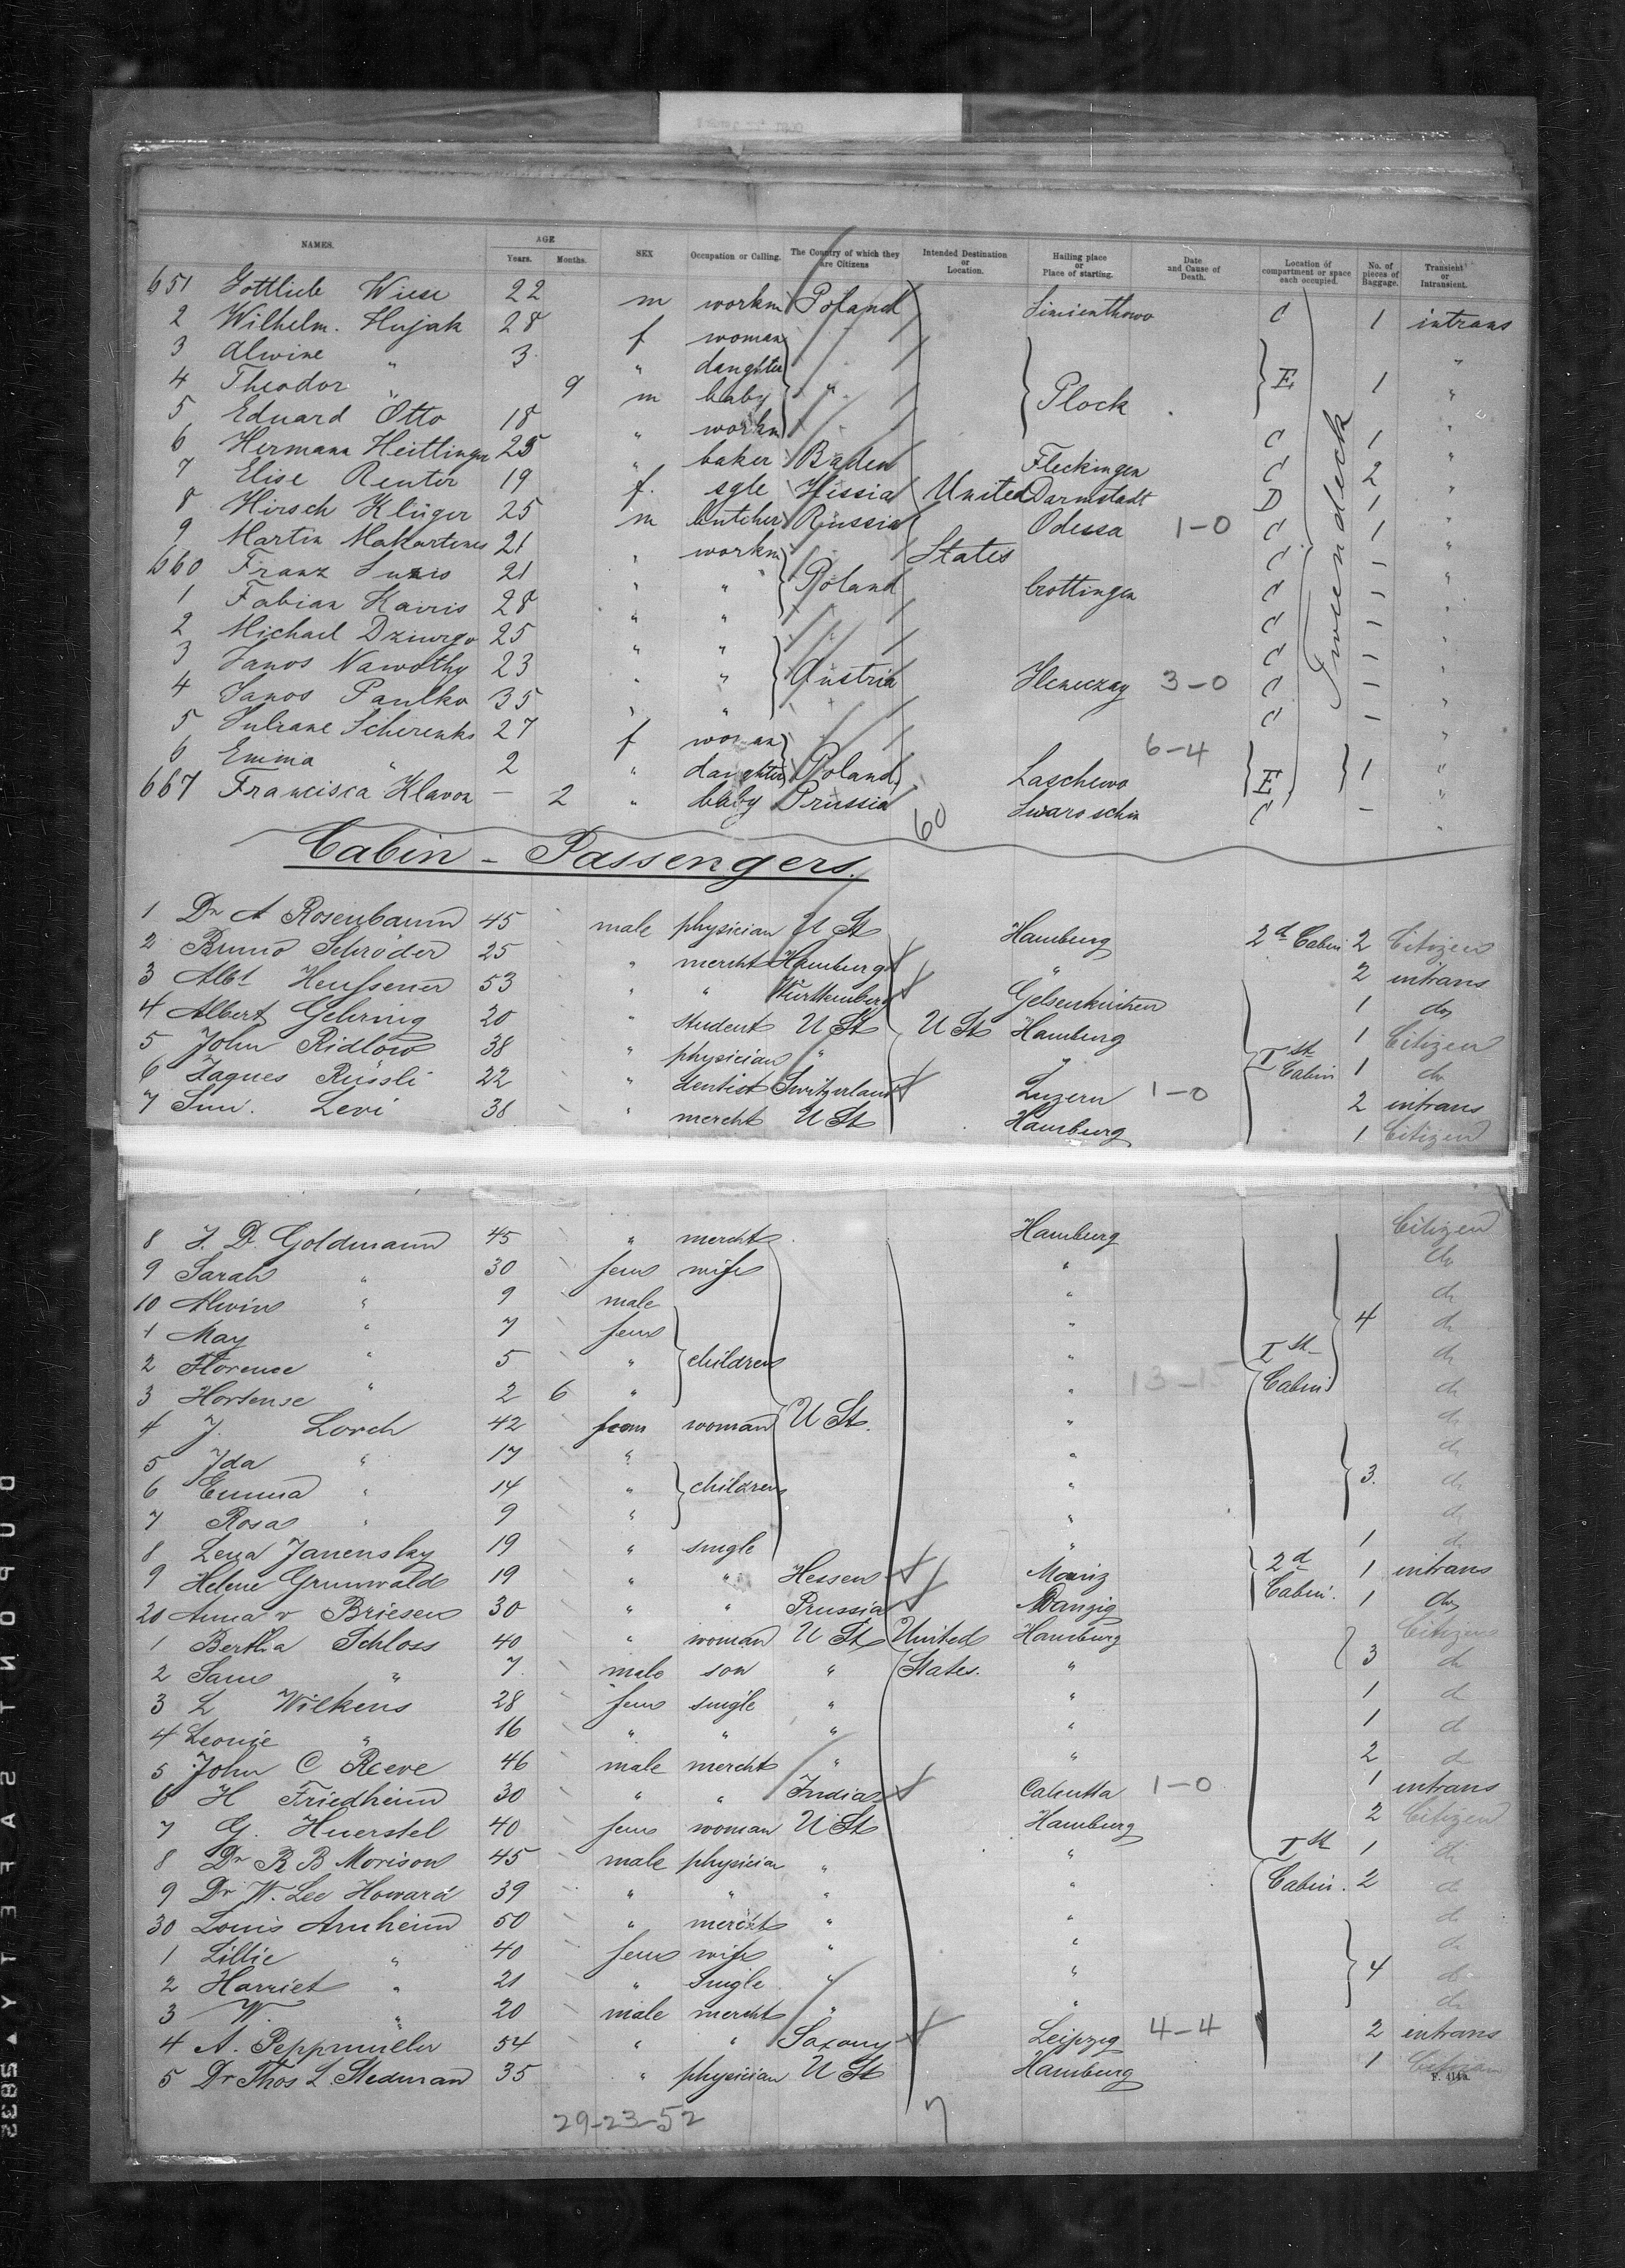 NAMES. AGE Years. Months. SEX Occupation or Calling. The Country of which they are Citizens Intended Destination or Location. Hailing place or Place of starting. Date and Cause of Death. Location of compartment or space each occupied. No. of pieces of Baggage. Transient or Intransient.
651 Gottlieb Wiese 22 m workm Poland C 1 intrans
2 Wilhelm. Hujak 28 f woman
3 Alwine " 3 " daughter " E 1 "
4 Theodor " 9 m baby " Plock "
5 Eduard Otto 18 " workm " C 1 "
6 Hermann Heitlinger 25 " baker Baden Fleckingen C 2 "
7 Elise Renter 19 f. sgle Hissia United Darmstadt D 1 "
8 Hirsch Klüger 25 m butcher Russia Odessa 1-0 C 1 "
9 Martin Makartenes 21 " workm States C - "
660 Franz 21 " " Poland Crottingen C - "
1 Fabian Kairis 28 " " C - "
2 Michael Dziurgo 25 " " C - "
3 Janos Nawothy 23 " " Austria C - "
4 Janos Paulko 35 " " 3-0 C - "
5 Juliane Scherenks 27 f woman "
6 Emma " 2 " daughter Poland Laschewo 6-4 E 1 "
667 Francisca Klavon - 2 " baby Prussia Swaroschin C - "
Tweendeck
60
Cabin - Passengers.
1 Dr A Rosenbaum 45 male physician U St Hamburg 2d Cabin 2 Citizen
2 Bruno Schröder 25 " mercht Hamburg " 2 intrans
3 Albt Heussener 53 " " Württemberg Gelsenkirchen 1 do
4 Albert Gehring 20 " student U St U St Hamburg 1 Citizen
5 John Ridlow 38 " physician " " Ist Cabin 1 do
6 Jaques Rüssli 22 " dentist Switzerland Luzern 1-0 2 intrans
7 Sim. Levi 38 " mercht U St Hamburg 1 Citizen
8 J. D. Goldmann 45 " mercht Hamburg Citizen
9 Sarah " 30 fem wife " do
10 Alwin " 9 male " do
1 May " 7 fem " 4 do
2 Florence " 5 " children " Ist do
3 Hortense " 2 6 " " 13-15 Cabin do
4 J. Lorch 42 fem woman U St. " do
5 Ida " 17 " " do
6 Emma " 14 " children " 3. do
7 Rosa " 9 " " do
8 Lena Janensky 19 " single " 1 do
9 Helene Grunwald 19 " " Hessen Mainz 2d 1 intrans
20 Anna v Briesen 30 " " Prussia Danzig Cabin. 1 do
1 Bertha Schloss 40 " woman U St United Hamburg Citizen
2 Sam " 7 male son " States. " 3 do
3 L Wilkens 28 fem single " " 1 do
4 Leonie " 16 " " " " 1 do
5 John C Reeve 46 male mercht " " 2 do
6 H Friedheim 30 " " India Calcutta 1-0 1 intrans
7 G. Huerstel 40 fem woman U St Hamburg 2 Citizen
8 Dr R B Morison 45 male physician " " Ist 1 do
9 Dr W. Lee Howard 39 " " " " Cabin. 2 do
30 Louis Arnheim 50 " mercht " " do
1 Lillie " 40 fem wife " " do
2 Harriet " 21 " Single " " 4 do
3 W. " 20 male mercht " " do
4 A. Peppmüller 54 " " Saxony Leipzig 4-4 2 intrans
5 Dr Thos L. Stedman 35 " physician U St Hamburg 1 Citizen
F. 414b.
29-23-52
7
DUPONT SAFETY 5832